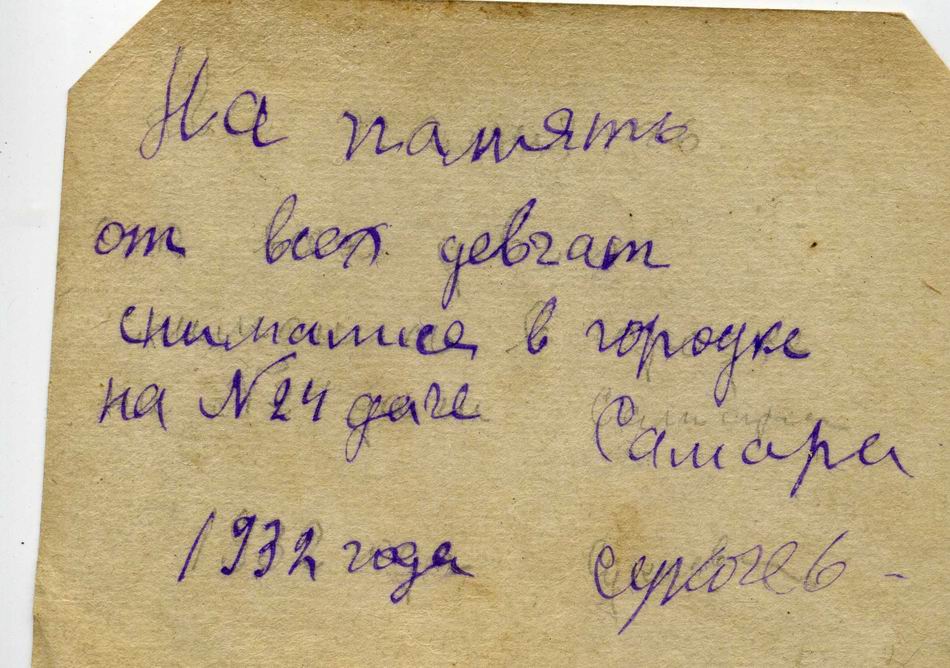 На память
от всех девчат
снимались в городке
на №24 даче
Самара
1932 года